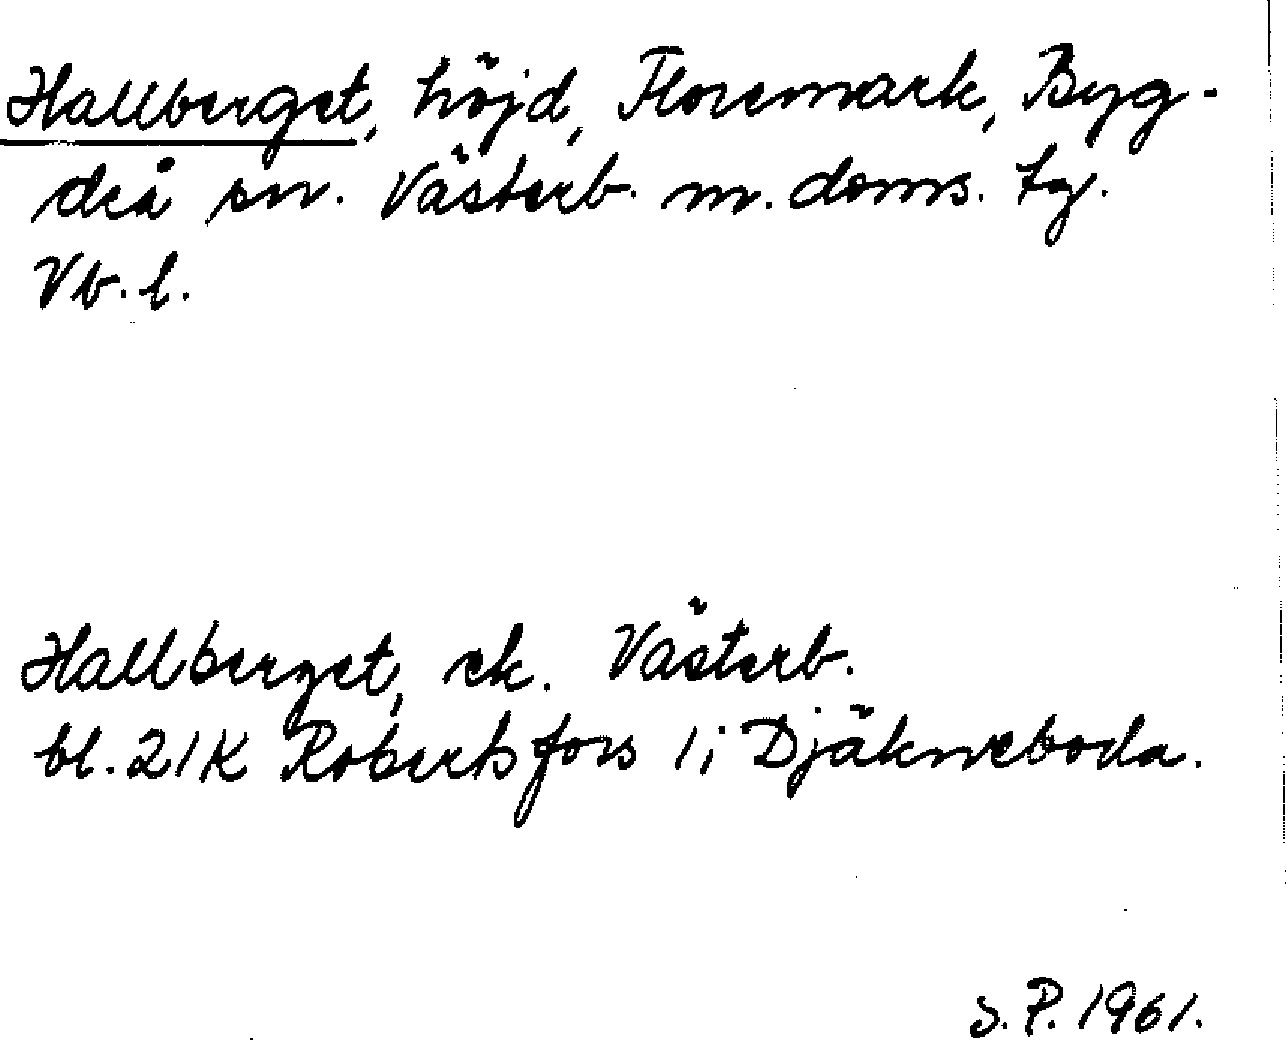 Hallberget, höjd, Floremark, Byg-
deå sn. Västerb. m. doms. tg.
Vb. l.
Hallberget, ek. Västerb.
bl. 21K Robertsfors 1i Djäkneboda.
S.P. 1961.